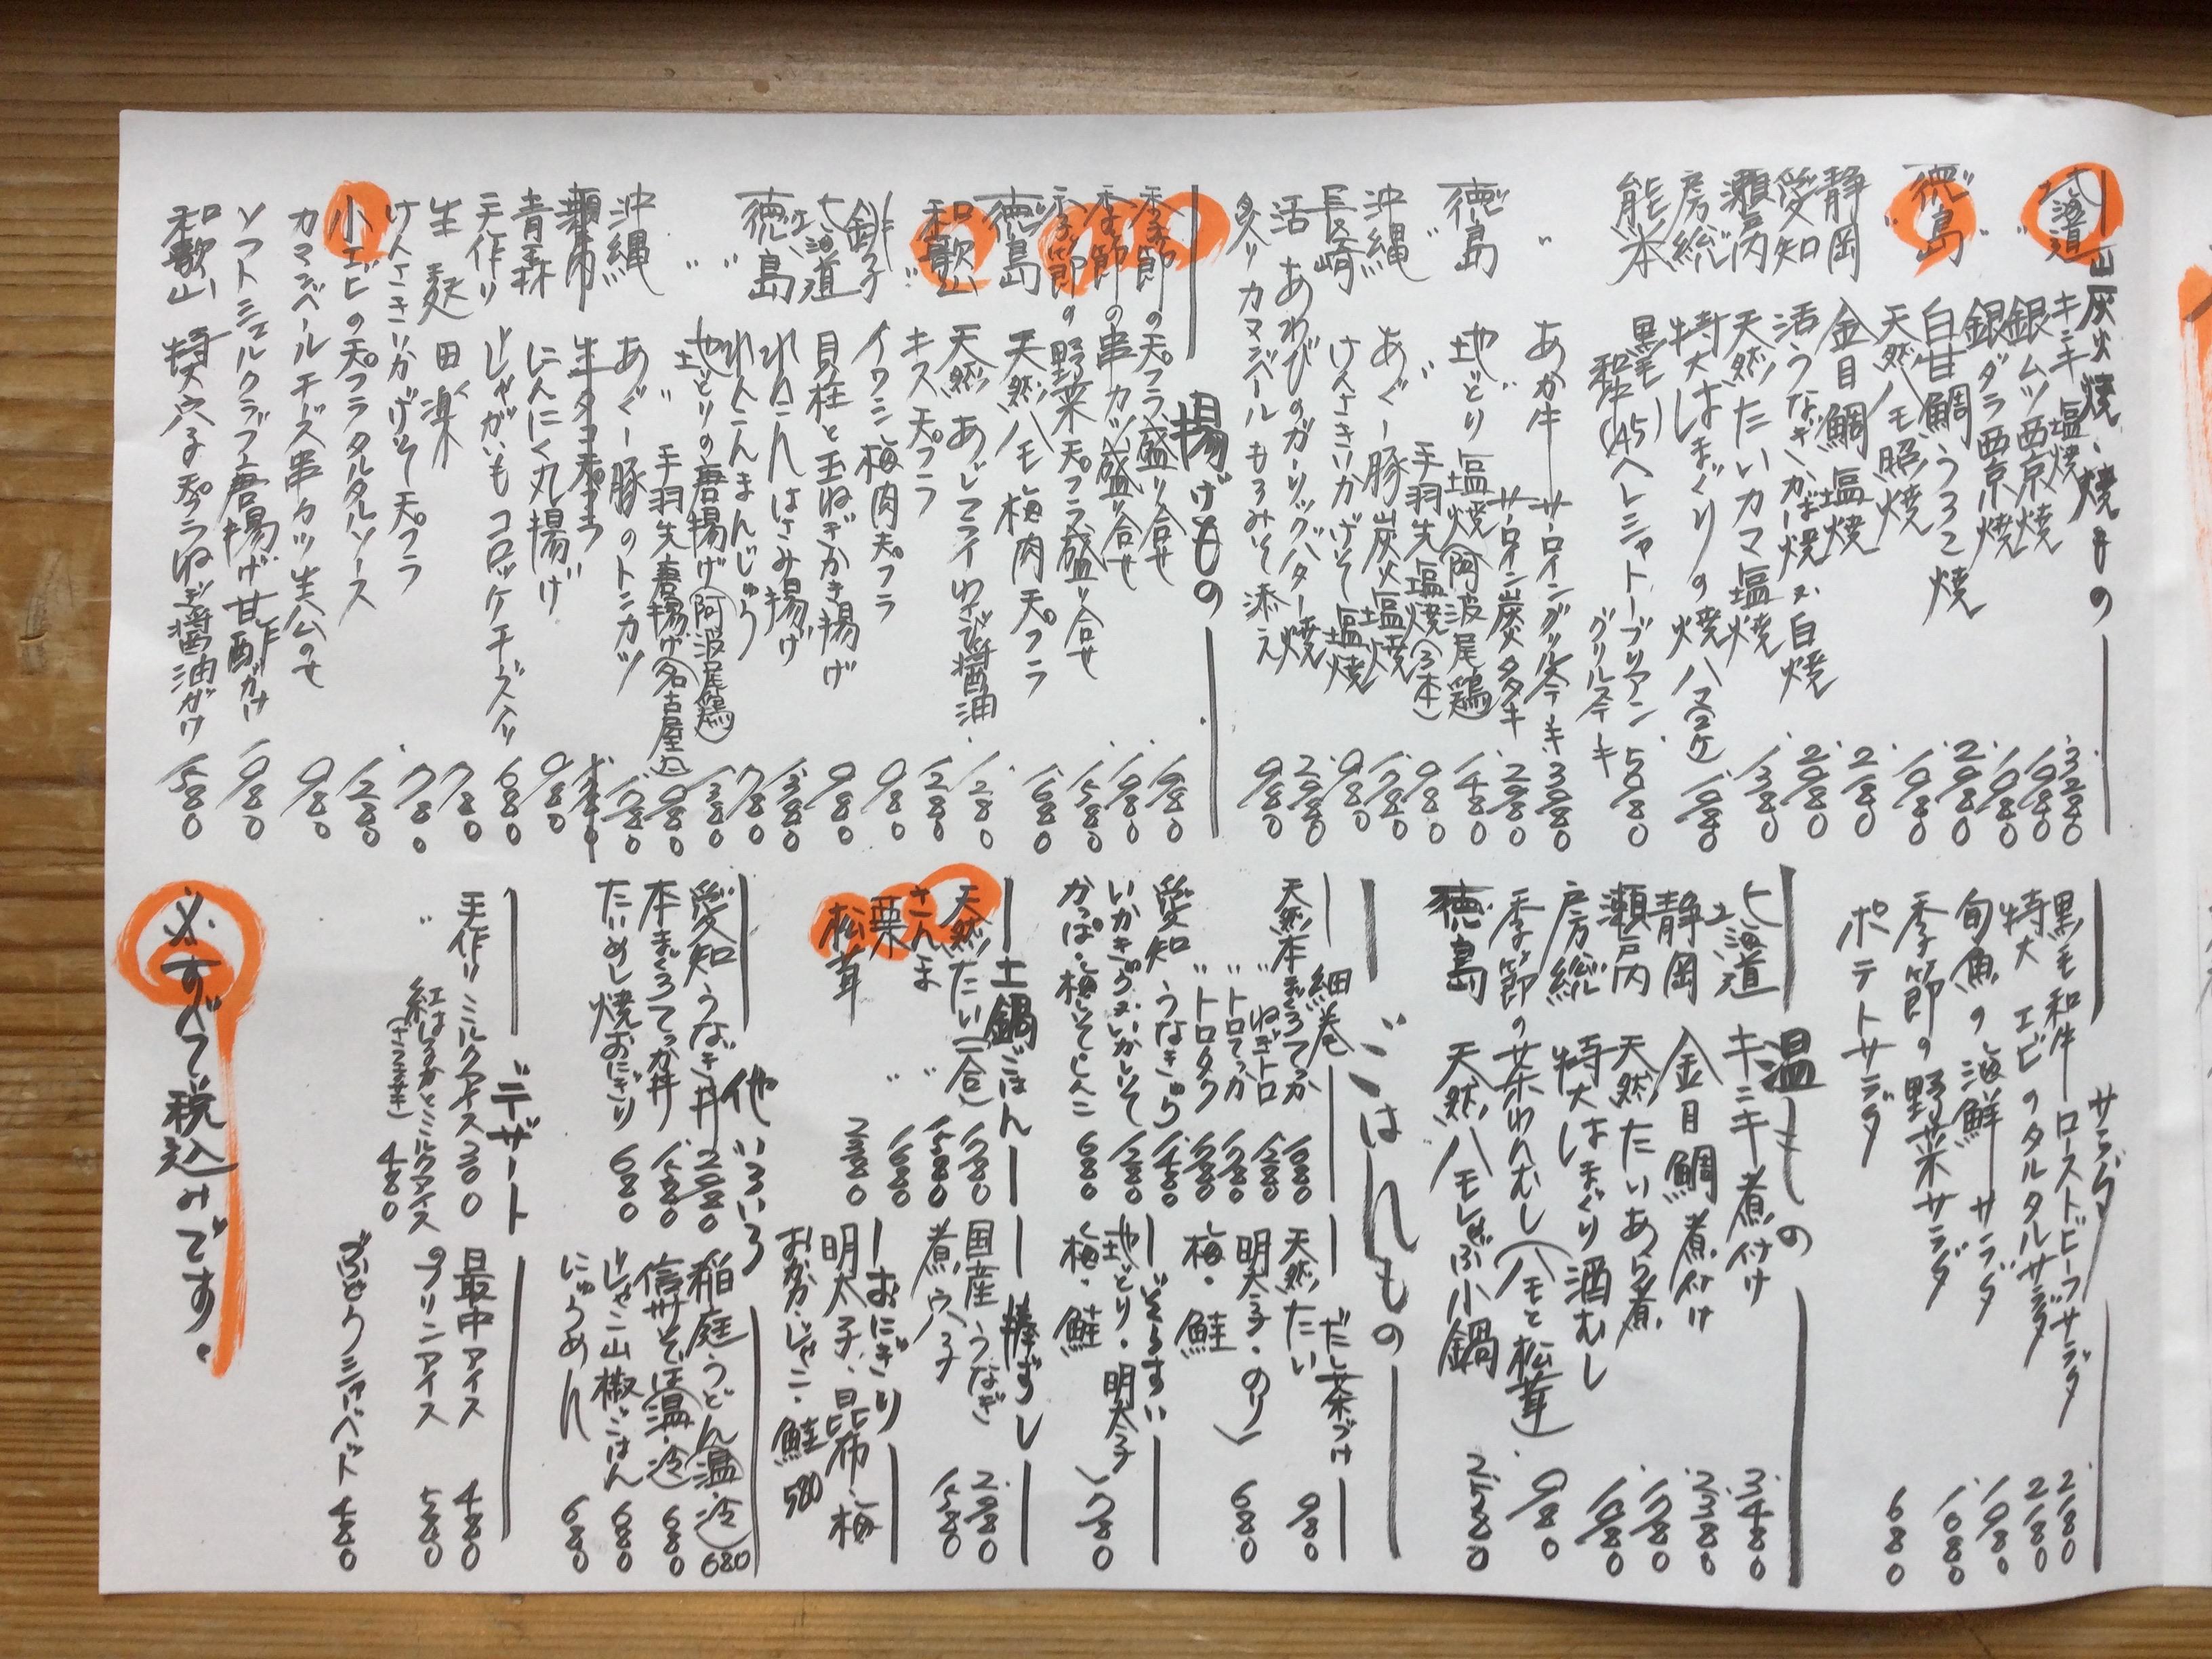 炭火焼・焼もの
北海道 キンキ塩焼 3280
〃 銀ムツ西京焼 1980
銀ダラ西京焼 1980
徳島 白甘鯛うろこ焼 2980
〃 天然ハモ照焼 1980
静岡 金目鯛塩焼 2180
愛知 活うなぎかば焼又は白焼 2980
瀬戸内 天然たいカマ塩焼 1380
房総 特大はまぐりの焼ハマ(2ケ) 1080
熊本 黒毛和牛(A5)ヘレシャトーブリアン グリルステーキ 5080
〃 あか牛 サーロイングリルステーキ 3080
サーロイン炭タタキ 2980
徳島 地どり塩焼(阿波尾鶏) 1480
〃 〃 手羽先塩焼(3本) 980
沖縄 あぐー豚炭火塩焼 1780
長崎 けんさきいかげそ塩焼 980
活あわびのガーリックバター焼 2980
炙りカマンベールもろみそ添え 980
揚げもの
季節の天プラ盛り合せ 1980
季節の串カツ盛り合せ 1980
季節の野菜天プラ盛り合せ 1580
徳島 天然ハモ梅肉天プラ 1680
和歌山 天然あじフライわさび醤油 1280
〃 キス天プラ 1280
銚子 イワシ梅肉天プラ 980
北海道 貝柱と玉ねぎかき揚げ 980
徳島 れんこんはさみ揚げ 1380
〃 れんこんまんじゅう 780
〃 地どりの唐揚げ(阿波尾鶏) 1380
〃 手羽先唐揚げ(名古屋風) 980
沖縄 あぐー豚のトンカツ 1780
青森 にんにく丸揚げ 980
手作り じゃがいもコロッケチーズ入り 680
生麩田楽 780
けんさきいかげそ天プラ 780
小エビの天プラタルタルソース 1280
カマンベールチーズ串カツ生ハムのせ 980
ソフトシェルクラブ唐揚げ甘酢がけ 1980
和歌山 特大穴子天プラねぎ醤油がけ 1580
サラダ
黒毛和牛ローストビーフサラダ 2180
特大エビのタルタルサラダ 2180
旬魚の海鮮サラダ 1980
季節の野菜サラダ 1080
ポテトサラダ 680
温もの
北海道 キンキ煮付け 3480
静岡 金目鯛煮付け 2380
瀬戸内 天然たいあら煮 1780
房総 特大はまぐり酒むし 1080
季節の茶わんむし(ハモと松茸) 980
徳島 天然ハモしゃぶ小鍋 2580
ごはんもの
細巻
天然本まぐろてっか 1680
〃 ねぎトロ 1280
〃 トロてっか 1780
〃 トロタク 1580
愛知 うなきゅう 1480
いかきゅう・いかしそ 1280
かっぱ・梅しそ・しんこ 680
だし茶づけ
天然たい 980
明太子・のり
梅・鮭 680
ぞうすい
地どり・明太子
梅・鮭 780
土鍋ごはん
天然たい(一合) 1780
さんま 〃 1580
栗 〃 1680
松茸 2380
棒ずし
国産うなぎ 2980
煮穴子 1580
おにぎり
明太子・昆布・梅
おかか・じゃこ・鮭 580
他いろいろ
愛知うなぎ丼 2980
本まぐろてっか丼 1580
たいめし焼おにぎり 680
稲庭うどん(温・冷) 680
信州そば(温・冷) 680
じゃこ山椒ごはん 680
にゅうめん 680
デザート
手作りミルクアイス 300
〃 紅はるかとミルクアイス 480
最中アイス 480
プリンアイス 580
ぶどうシャーベット 480
※すべて税込みです。